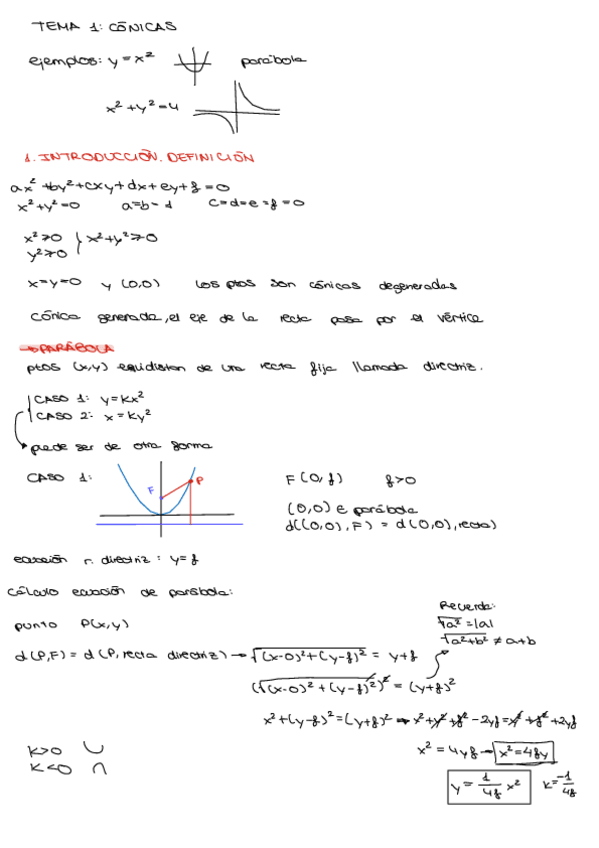 TEMA 1: CÓNICAS
ejemplos: y = x² parábola
x² + y² = 4
1. INTRODUCCIÓN. DEFINICIÓN
ax² + by² + cxy + dx + ey + f = 0
x² + y² = 0 a = b = 1 c = d = e = f = 0
x² ≥ 0 } x² + y² ≥ 0
y² ≥ 0
x = y = 0 y (0,0) los ptos son cónicas degeneradas
cónica generada, el eje de la recta pasa por el vértice
→ PARÁBOLA
ptos (x,y) equidistan de una recta fija llamada directriz.
CASO 1: y = kx²
CASO 2: x = ky²
puede ser de otra forma
CASO 1: F P F(0,f) f>0
(0,0) e parábola
d((0,0), F) = d(0,0), recta)
ecuación r. directriz: y = f
cálculo ecuación de parábola:
Recuerda:
punto P(x,y) √a² = |a|
√a²+b² ≠ a+b
d(P,F) = d(P, recta directriz) → √(x-0)²+(y-f)² = y+f
(√(x-0)² + (y-f)²)² = (y+f)²
x² + (y-f)² = (y+f)² → x² + y² + f² - 2yf = y² + f² + 2yf
k>0 ∪ x² = 4yf → x² = 4fy
k<0 ∩
y = 1/4f x² k = -1/4f